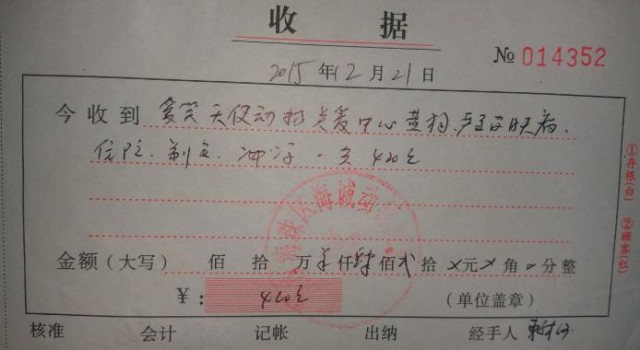 收据
№ 014352
2015年12月21日
今收到 爱笑天使动物关爱中心黄狗
住院、剃毛、冲洗 一共 420元
金额（大写） 佰 拾 万 仟肆佰贰拾 元 角 分整
¥： 420元 （单位盖章）
核准 会计 记帐 出纳 经手人
①存根(白) ②顾客(红)
海城动